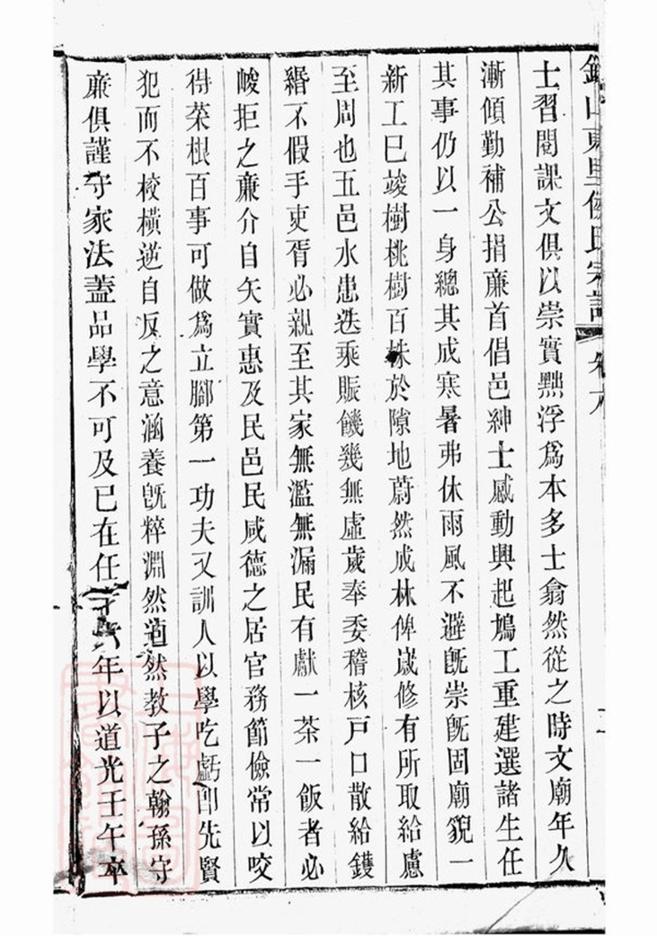 錫山東里侯氏宗譜 卷八
士習閱課文俱以崇實黜浮爲本多士翕然從之時文廟年久
漸傾勤補公捐廉首倡邑紳士感動興起鳩工重建選諸生任
其事仍以一身總其成寒暑弗休雨風不避旣崇旣固廟貌一
新工巳竣樹桃樹百株於隙地蔚然成林俾嵗修有所取給慮
至周也五邑水患迭乘賑饑幾無虛歲奉委稽核戸口散給鑊
緡不假手吏胥必親至其家無濫無漏民有獻一茶一飯者必
峻拒之廉介自矢實惠及民邑民咸德之居官務節儉常以咬
得菜根百事可做爲立腳第一功夫又訓人以學吃虧卽先賢
犯而不校橫逆自反之意涵養旣粹淵然逌然教子之翰孫守
廉俱謹守家法蓋品學不可及已在任 年以道光壬午卒